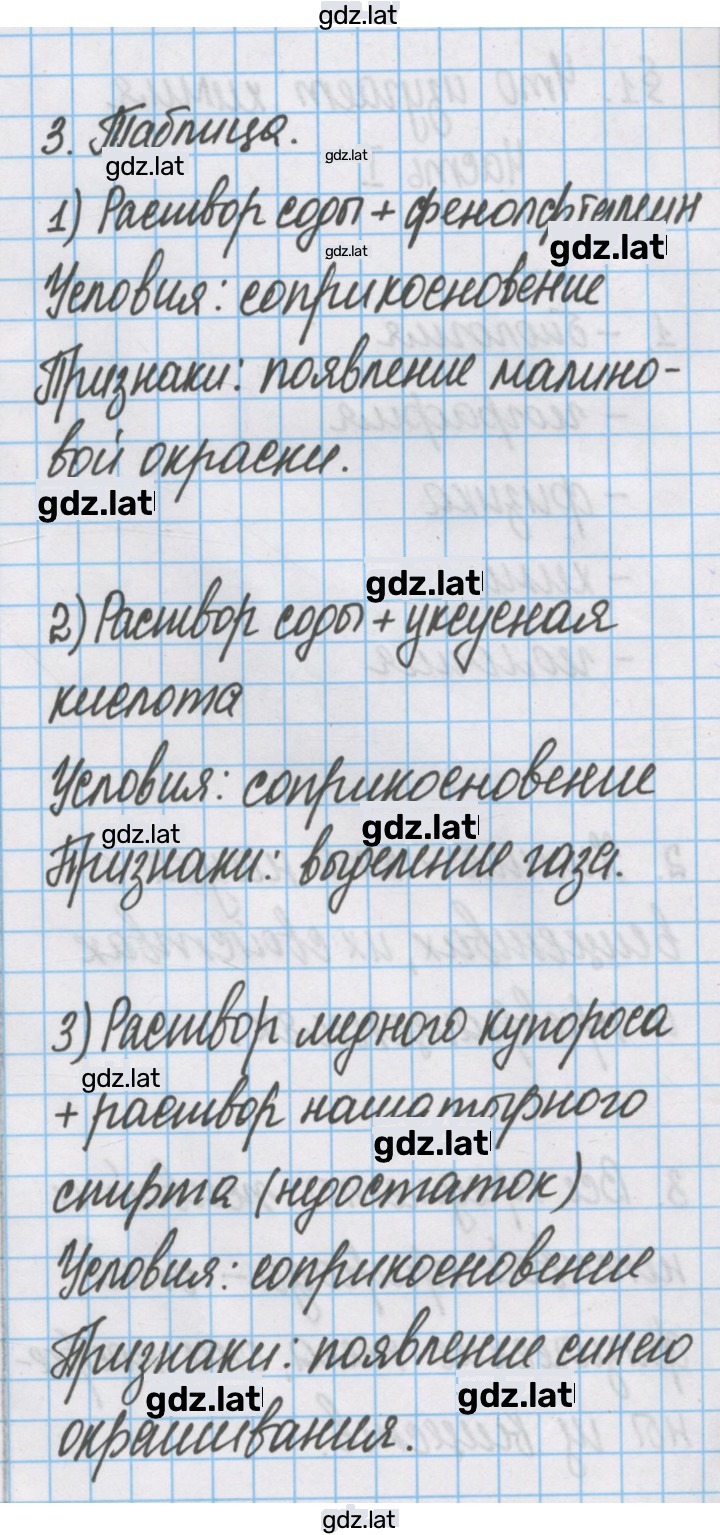 gdz.lat
3. Таблица.
gdz.lat
gdz.lat
1) Раствор соды + фенолфталеин
gdz.lat
gdz.lat
Условия: соприкосновение
Признаки: появление малино-
вой окраски.
gdz.lat
gdz.lat
2) Раствор соды + уксусная
кислота
Условия: соприкосновение
gdz.lat
gdz.lat
Признаки: выделение газа.
3) Раствор медного купороса
gdz.lat
+ раствор нашатырного
gdz.lat
спирта (недостаток)
Условия: соприкосновение
Признаки: появление синего
gdz.lat
gdz.lat
окрашивания.
gdz.lat